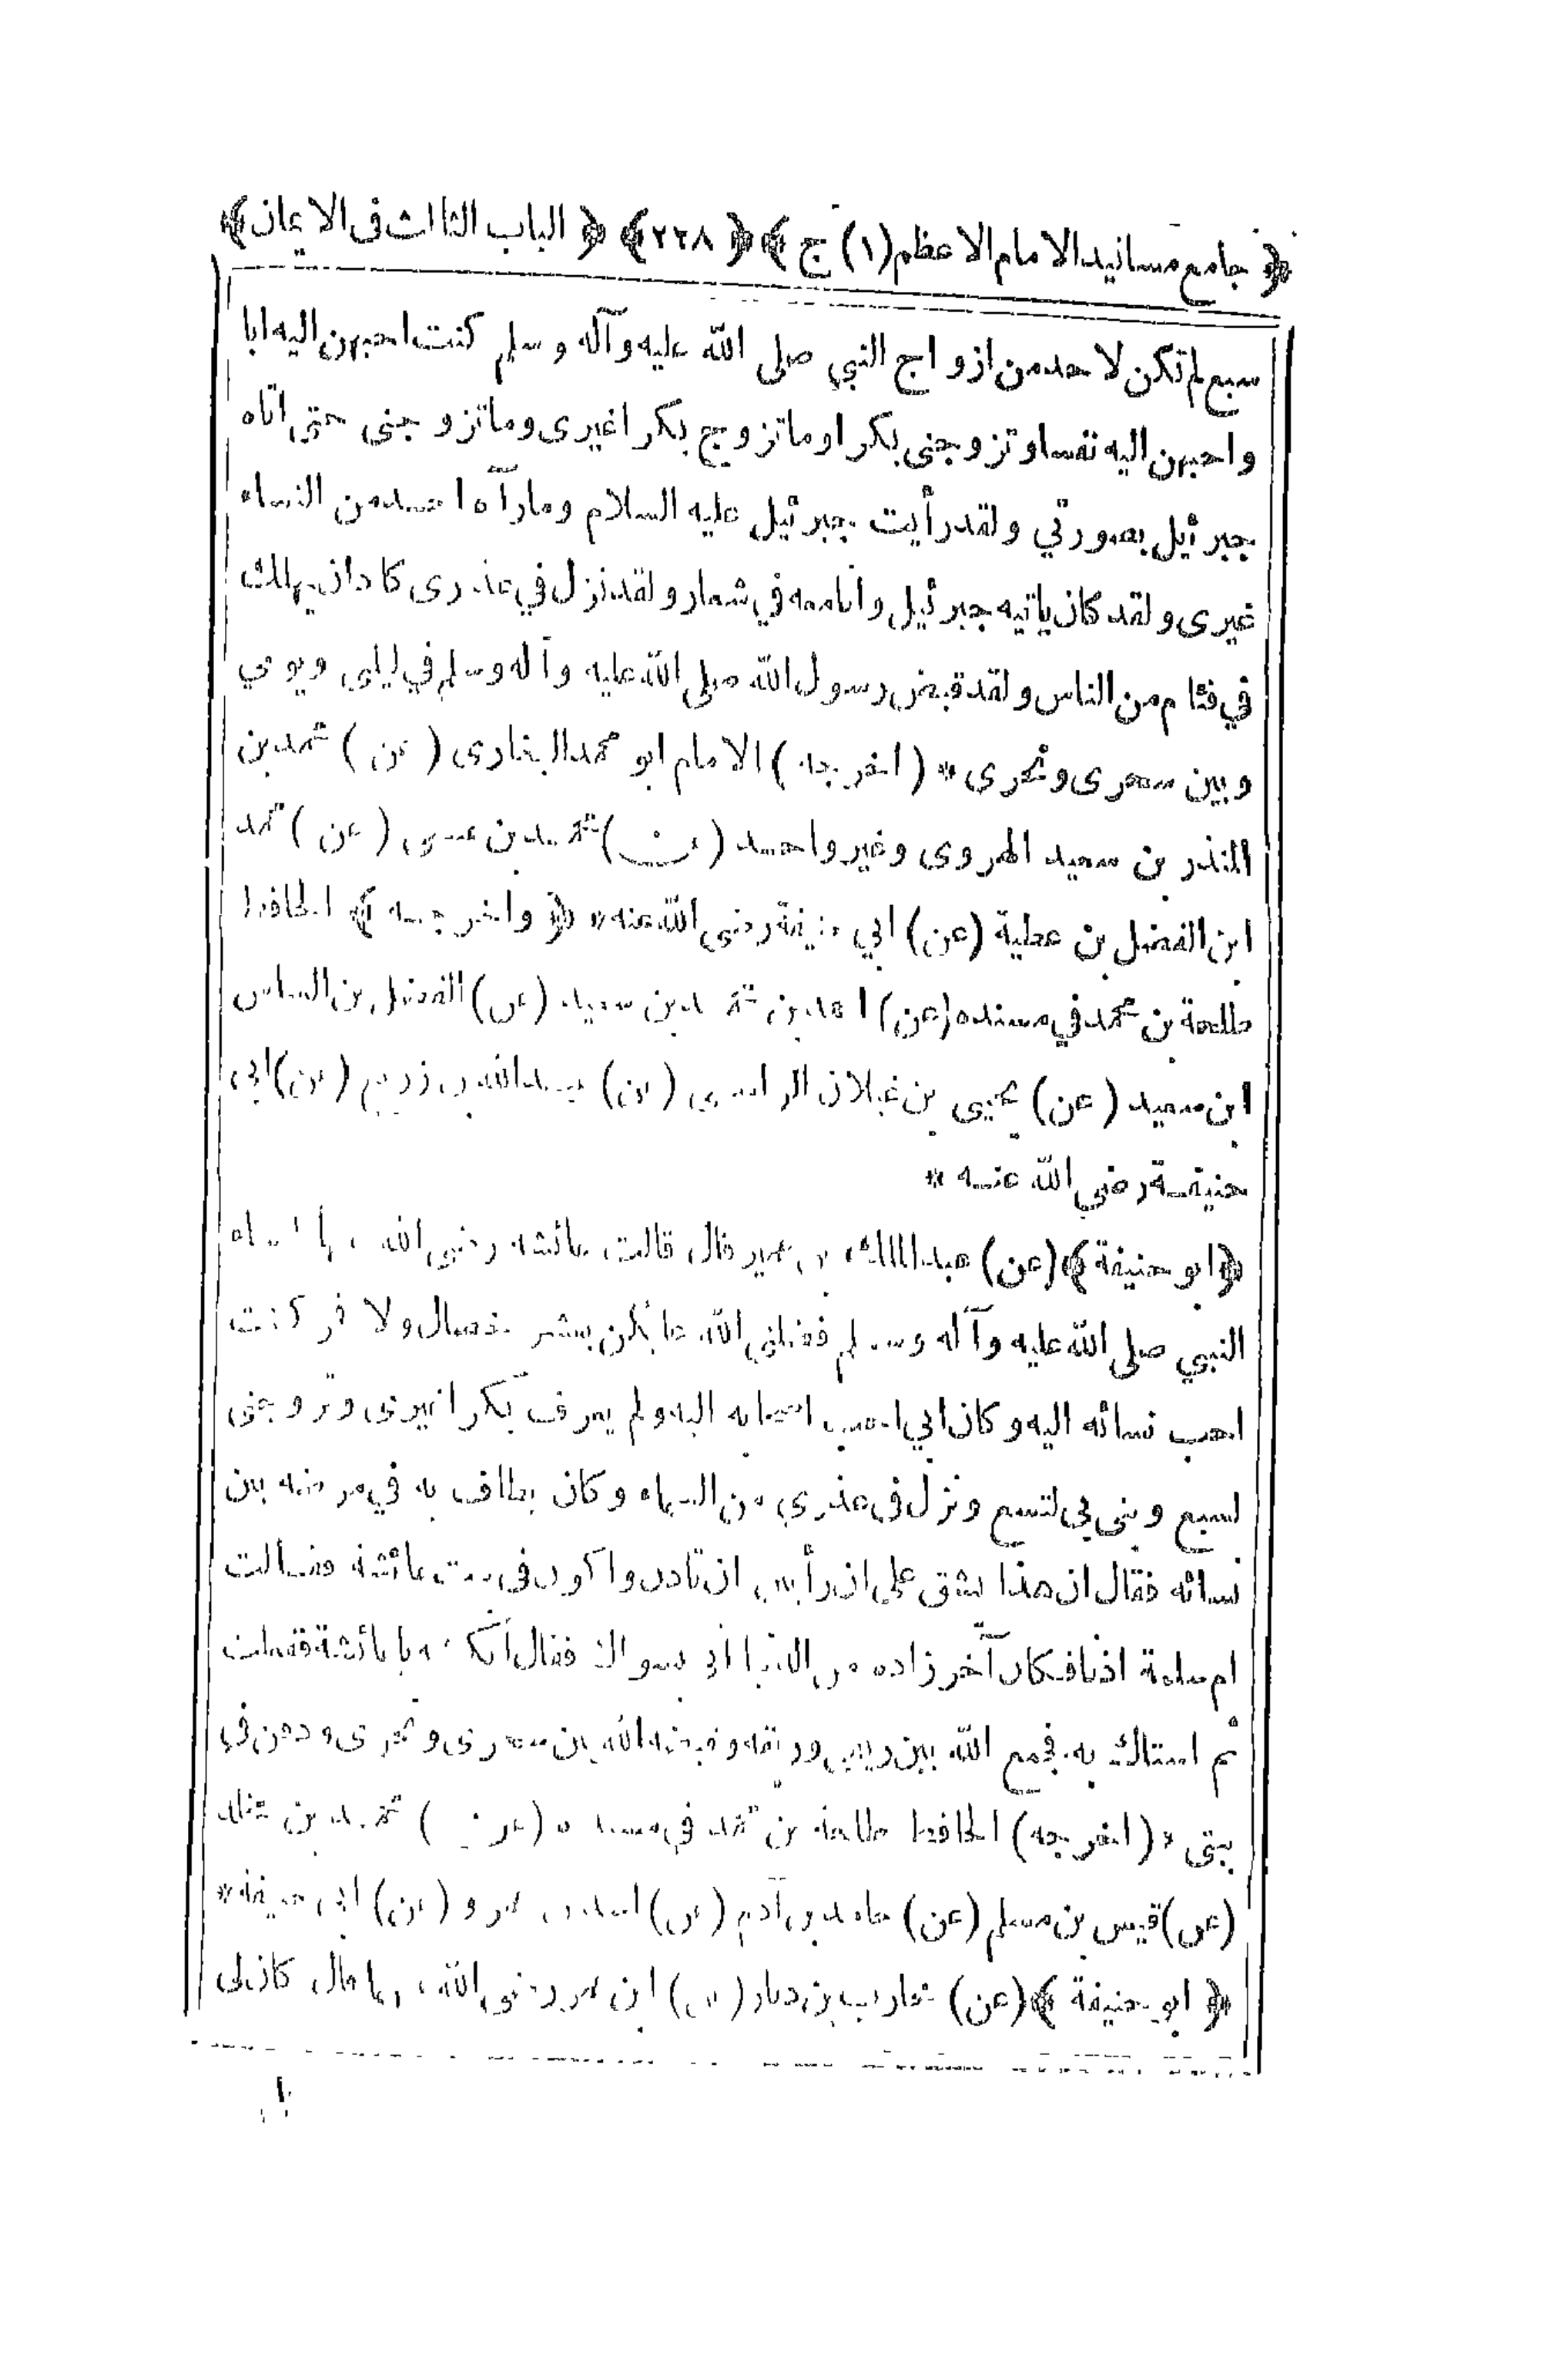 ﴿ جامع مسانيد الامام الاعظم (١) ج ﴾ ﴿ ٢٢٨ ﴾ ﴿ الباب الثالث فى الايمان ﴾
سبع لم تكن لاحد من ازواج النبي صلى الله عليه وآله وسلم كنت احبهن اليه ابا
واحبهن اليه نفسا وتزوجنى بكرا وما تزوج بكرا غيرى وما تزوجنى حتى اتاه
جبرئيل بصورتي ولقد رأيت جبرئيل عليه السلام وما رآه احد من النساء
غيرى ولقد كان ياتيه جبرئيل وانا معه في شعار ولقد نزل في عذرى كاد ان يهلك
في فئام من الناس ولقد قبض رسول الله صلى الله عليه وآله وسلم في ليلى ويومي
وبين سحرى ونحرى * (اخرجه) الامام ابو محمد البخارى (عن) محمد بن
المنذر بن سعيد الهروى وغير واحد (عن) محمد بن عيسى (عن) محمد
ابن الفضل بن عطية (عن) ابي حنيفة رضى الله عنه * ﴿ واخرجه ﴾ الحافظ
طلحة بن محمد في مسنده (عن) احمد بن محمد بن سعيد (عن) الفضل بن العباس
ابن سعيد (عن) يحيى بن غيلان الراسبي (عن) عبد الله بن زريع (عن) ابى
حنيفة رضي الله عنه *
﴿ ابو حنيفة ﴾ (عن) عبد الملك بن عمير قال قالت عائشة رضى الله
النبي صلى الله عليه وآله وسلم فضلني الله عليكن بعشر خصال ولا فخر كنت
احب نسائه اليه وكان ابي احب اصحابه اليه ولم يعرف بكرا غيرى وتزوجنى
لسبع وبنى بي لتسع ونزل فى عذري من السماء وكان يطاف به في مرضه بين
نسائه فقال ان هذا يشق على ان رأيتن ان تأذن واكون فى بيت عائشة فقالت
ام سلمة اذنا فكان آخر زاده من الدنيا اتى بسواك فقال يا عائشة ففعلت
ثم استاك به فجمع الله بين ريقي وريقه وقبضه الله بين سحرى ونحرى ودفن فى
بيتى * (اخرجه) الحافظ طلحة بن محمد في مسنده (عن) محمد بن مخلد
(عن) قيس بن مسلم (عن) حامد بن آدم (عن) اسد بن عمرو (عن) ابى حنيفة *
﴿ ابو حنيفة ﴾ (عن) محارب بن دثار (عن) ابن عمر رضى الله عنهما قال كان لى